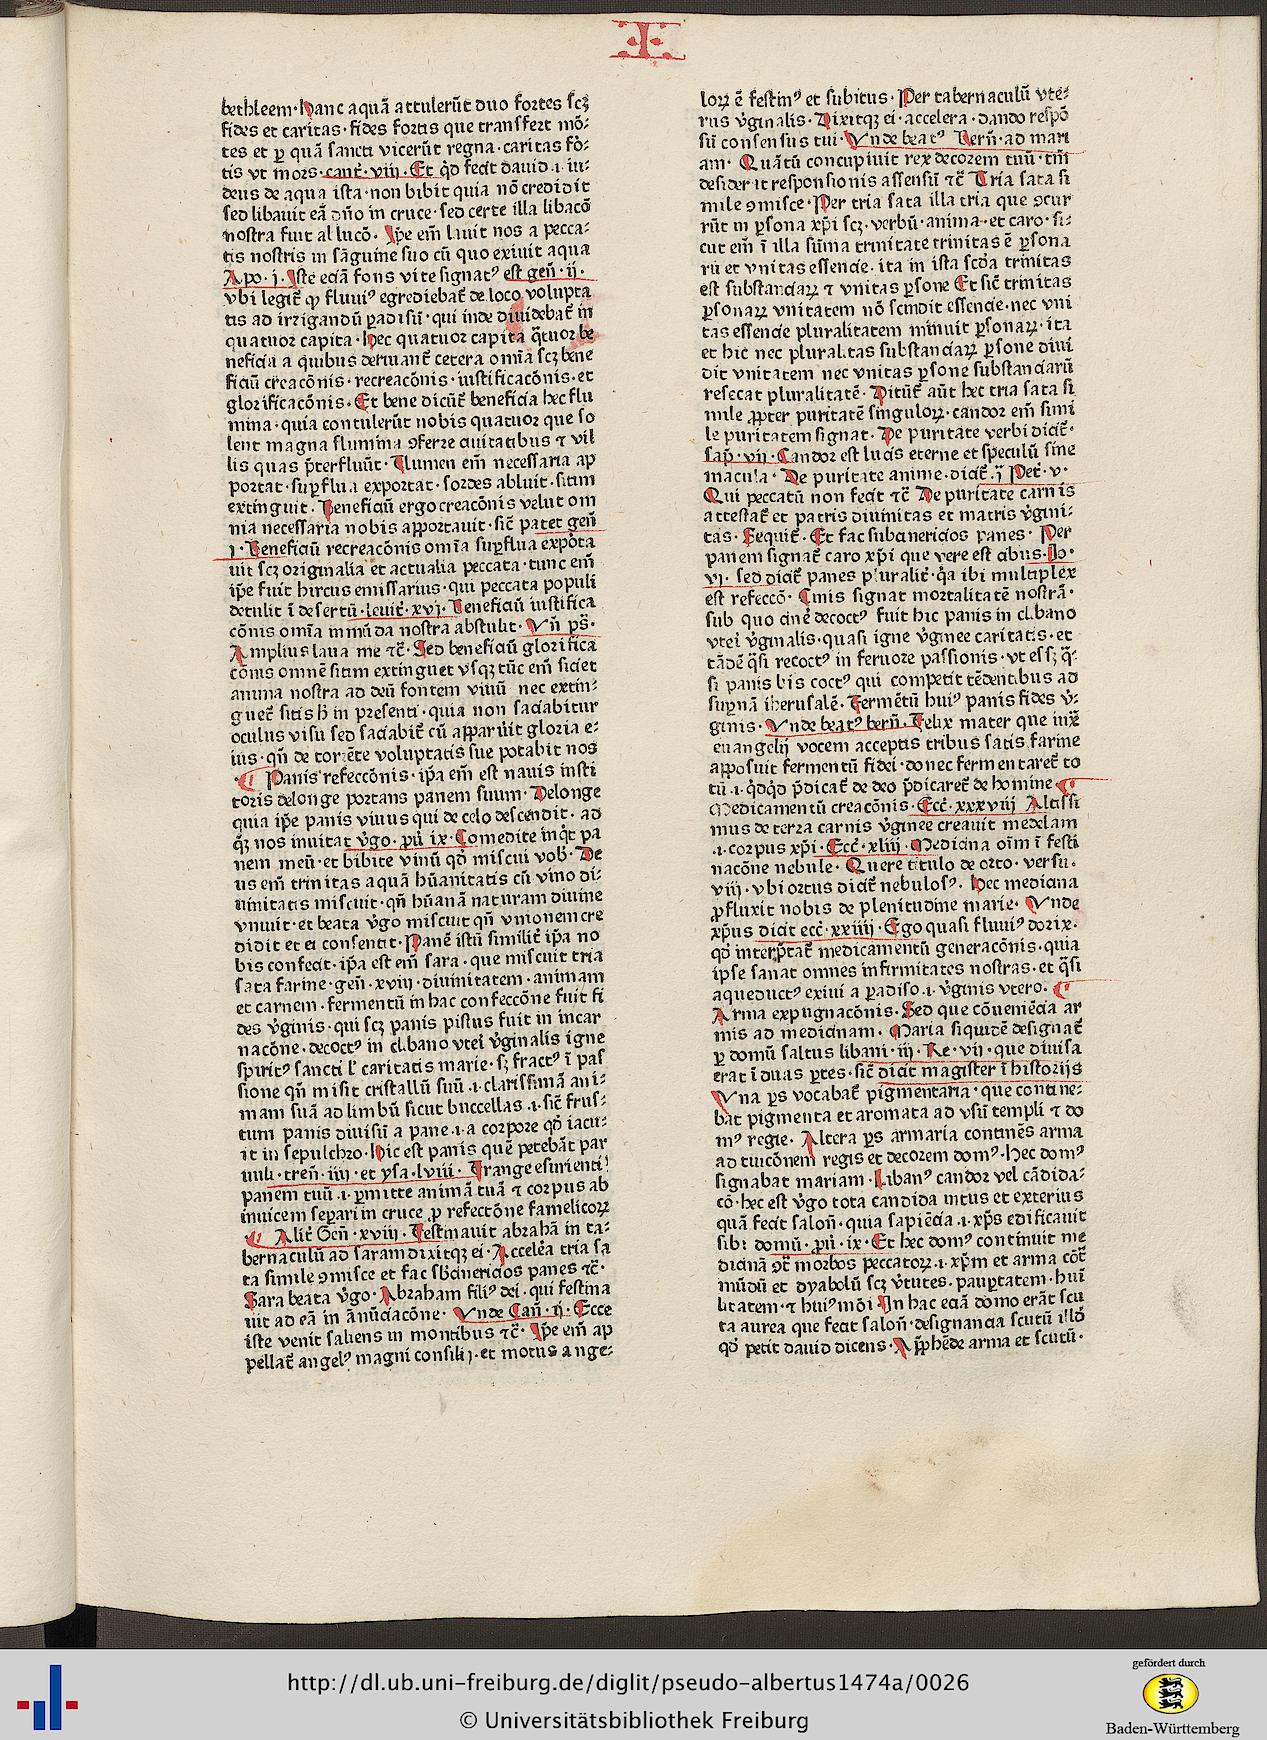 I
bethleem· Hanc aquā attulerūt duo fortes scz
fides et caritas· fides fortis que transfert mō⸗
tes et ꝑ quā sancti vicerūt regna· caritas fō⸗
tis vt mors· cant̄· viij· Et qd̄ fecit dauid ·i· iu⸗
deus de aqua ista· non bibit quia nō credidit
sed libauit eā dn̄o in cruce· sed certe illa libacō
nostra fuit allucō· Ipe em̄ lauit nos a pecca⸗
tis nostris in sāguine suo cū quo exiuit aqua
Apo· j· Iste eciā fons vite signatꝰ est gen̄· ij·
vbi legit̄ ꝙ fluuiꝰ egrediebat̄ de loco volupta
tis ad irrigandū ꝑadisū· qui inde diuidebat̄ in
quatuor capita· Hec quatuor capita q̄tuor be
neficia a quibus deriuant̄ cetera omīa scz bene
ficiū creacōnis· recreacōnis· iustificacōnis· et
glorificacōnis· Et bene dicūt̄ beneficia hec flu
mina· quia contulerūt nobis quatuor que so
lent magna flumina ꝯferre ciuitatibus ⁊ vil
lis quas p̄terfluūt· Flumen em̄ necessaria ap
portat· suꝑflua exportat· sordes abluit· sitim
extinguit· Beneficiū ergo creacōnis velut om
nia necessaria nobis apportauit· sic̄ patet gen̄
j· Beneficiū recreacōnis omīa suꝑflua expōta
uit scz originalia et actualia peccata· tunc em̄
ip̄e fuit hircus emissarius· qui peccata populi
detulit ī desertū· leuit̄· xvj· Beneficiū iustifica
cōnis omīa inmūda nostra abstulit· Vn̄ ps̄·
Amplius laua me ⁊c̄· Sed beneficiū glorifica
cōnis omnē sitim extinguet vsqꝫ tūc em̄ siciet
anima nostra ad deū fontem viuū nec extin⸗
guet̄ sitis h̄ in presenti· quia non saciabitur
oculus visu sed saciabit̄ cū apparu̇it gloria e⸗
ius· qn̄ de torrēte voluptatis sue potabit nos
¶ Panis refeccōnis· ip̄a em̄ est nauis insti
toris delonge portans panem suum· Delonge
quia ip̄e panis viuus qui de celo descendit· ad
q̄ꝫ nos inuitat v̇go· ꝓu̇· ix· Comedite inq̇t pa
nem meū· et bibite vinū qd̄ miscui vob̄· De
us em̄ trinitas aquā hūanitatis cū vino di⸗
uinitatis miscuit· qn̄ hūanā naturam diuine
vniuit· et beata v̇go miscuit qn̄ vnionem cre
didit et ei consensit· Panē istū similit̄ ip̄a no
bis confecit· ip̄a est em̄ sara· que miscuit tria
sata farine· gen̄· xviij· diuinitatem· animam
et carnem· fermentū in hac confeccōne fuit fi
des v̇ginis· qui scz panis pistus fuit in incar
nacōne· decoctꝰ in clibano vteri v̇ginalis igne
spiritꝰ sancti l̄ caritatis marie· sꝫ fractꝰ ī pas
sione qn̄ misit cristallū suū ·i· clarissimā ani⸗
mam suā ad limbū sicut buccellas ·i· sic̄ frus⸗
tum panis diuisū a pane ·i· a corpore qd̄ iacu⸗
it in sepulchro· Hic est panis quē petebāt par
uuli· tren̄· iiij· et ysa· lviij· Frange esurienti
panem tuū ·i· ꝑmitte animā tuā ⁊ corpus ab
inuicem seꝑari in cruce ꝓ refectōne famelicoꝝ
¶ Alit̄ Gen̄· xviij· Festinauit abrahā in ta⸗
bernaculū ad saram dixitqꝫ ei· Accelēa tria sa
ta simile ꝯmisce et fac sb̄cinericios panes ⁊c̄·
Sara beata v̇go· Abraham filiꝰ dei· qui festina
uit ad eā in ānūciacōne· Vnde Can̄· ij· Ecce
iste venit saliens in montibus ⁊c̄· Ip̄e em̄ ap
pellat̄ angelꝰ magni consilij· et motus ange⸗
loꝝ ē festinꝰ et subitus· Per tabernaculū vte⸗
rus v̇ginalis· Dixitqꝫ ei· accelera· dando respō
sū consensus tui· Vnde beatꝰ Bern̄· ad mari
am· Quātū concupiuit rex decorem tuū· tm̄
desiderat responsionis assensū ⁊c̄ Tria sata si
mile ꝯmisce· Per tria sata illa tria que ꝯcur
rūt in ꝑsona xp̄i scz· verbū· anima· et caro· si⸗
cut em̄ ī illa sūma trinitate trinitas ē ꝑsona
rū et vnitas essencie· ita in ista scd̄a trinitas
est substanciaꝝ ⁊ vnitas ꝑsone Et sic̄ trinitas
ꝑsonaꝝ vnitatem nō scindit essencie· nec vni
tas essencie pluralitatem minuit ꝑsonaꝝ· ita
et hic nec pluralitas substanciaꝝ ꝑsone diui
dit vnitatem nec vnitas ꝑsone substanciarū
resecat pluralitatē· Dicūt̄ aūt hec tria sata si
mile ꝓpter puritatē singuloꝝ· candor em̄ simi
le puritatem signat· De puritate verbi dicit̄·
sap̄· vij· Candor est lucis eterne et speculū sine
macula· De puritate anime· dicit̄· j· Pet̄· v·
Qui peccatū non fecit ⁊c̄ De puritate carnis
attestat̄ et patris diuinitas et matris v̇gini⸗
tas· Sequit̄· Et fac subcinericios panes· Per
panem signat̄ caro xp̄i que vere est cibus· Jo·
vj· sed dicit̄ panes pluralit̄· q̇a ibi multiplex
est refeccō· Cinis signat mortalitatē nostrā·
sub quo cinē decoctꝰ fuit hic panis in clibano
vteri v̇ginalis· quasi igne v̇ginee caritatis· et
tādē q̄si recoctꝰ in feruore passionis· vt essꝫ q̄⸗
si panis bis coctꝰ qui competit tēdentibus ad
suꝑnā iherusalē· Fermētū huiꝰ panis fides v̇⸗
ginis· Vnde beatꝰ bern̄· Felix mater que iuxͣ
euangelij vocem acceptis tribus satis farine
apposuit fermentū fidei· donec fermentaret̄ to
tū ·i· qḋqḋ p̄dicat̄ de deo p̄dicaret̄ de homine ¶
Medicamentū creacōnis· Ecc̄· xxxviij Altissi
mus de terra carnis v̇ginee creauit medelam
·i· corpus xp̄i· Ecc̄· xliij· Medicina oīm ī festi
nacōne nebule· Quere titulo de orto· versu·
viij· vbi ortus dicit̄ nebulosꝰ· Hec medicina
ꝓfluxit nobis de plenitudine marie· Vnde
xp̄us dicit ecc̄· xxiiij· Ego quasi fluuiꝰ dorix·
qd̄ interp̄tat̄ medicamentū generacōnis· quia
ipse sanat omnes infirmitates nostras· et q̄si
aqueductꝰ exiui a ꝑadiso ·i· v̇ginis vtero· ¶
Arma expugnacōnis· Sed que cōueniēcia ar
mis ad medicinam· Maria siquidē designat̄
ꝑ domū saltus libani· iij· Re· vij· que diuisa
erat ī duas ꝑtes· sic̄ dicit magister ī historijs
Vna ꝑs vocabat̄ pigmentaria· que contine⸗
bat pigmenta et aromata ad vsū templi ⁊ do
mꝰ regie· Altera ꝑs armaria continēs arma
ad tuicōnem regis et decorem domꝰ· Hec domꝰ
signabat mariam· Libanꝰ candor vel cādida⸗
cō· hec est v̇go tota candida intus et exterius
quā fecit salon̄· quia sapiēcia ·i· xp̄s edificauit
sibi domū· ꝓu̇· ix· Et hec domꝰ continuit me
dicinā ꝯt̄ morbos peccatoꝝ ·i· xp̄m et arma cōt̄
mūdū et dyabolū scz v̇tutes· paupertatem· hui
litatem· ⁊ huiꝰmōi In hac eciā domo erāt scu
ta aurea que fecit salon̄· designancia scutū illō
qd̄ petit dauid dicens· Apprehēde arma et scutū·
http://dl.ub.uni-freiburg.de/diglit/pseudo-albertus1474a/0026
© Universitätsbibliothek Freiburg
gefördert durch
Baden-Württemberg